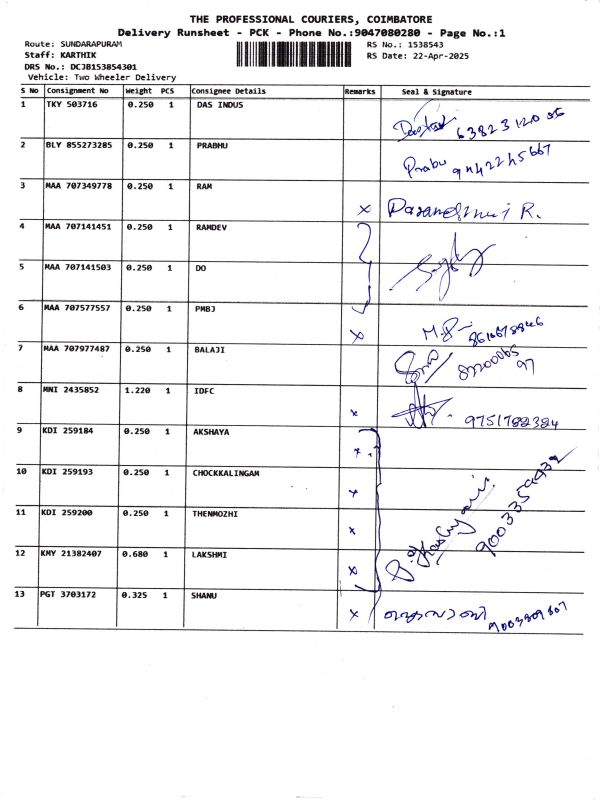 THE PROFESSIONAL COURIERS, COIMBATORE
Delivery Runsheet - PCK - Phone No.:9047080280 - Page No.:1
Route: SUNDARAPURAM RS No.: 1538543
Staff: KARTHIK RS Date: 22-Apr-2025
DRS No.: DCJB153854301
Vehicle: Two Wheeler Delivery
S No Consignment No Weight PCS Consignee Details Remarks Seal & Signature
1 TKY 503716 0.250 1 DAS INDUS
2 BLY 855273285 0.250 1 PRABHU Prabu
3 MAA 707349778 0.250 1 RAM x
4 MAA 707141451 0.250 1 RAMDEV
5 MAA 707141503 0.250 1 DO
6 MAA 707577557 0.250 1 PMBJ x
7 MAA 707977487 0.250 1 BALAJI
8 MNI 2435852 1.220 1 IDFC x 9751782384
9 KDI 259184 0.250 1 AKSHAYA x
10 KDI 259193 0.250 1 CHOCKKALINGAM x
11 KDI 259200 0.250 1 THENMOZHI x
12 KMY 21382407 0.680 1 LAKSHMI x
13 PGT 3703172 0.325 1 SHANU x